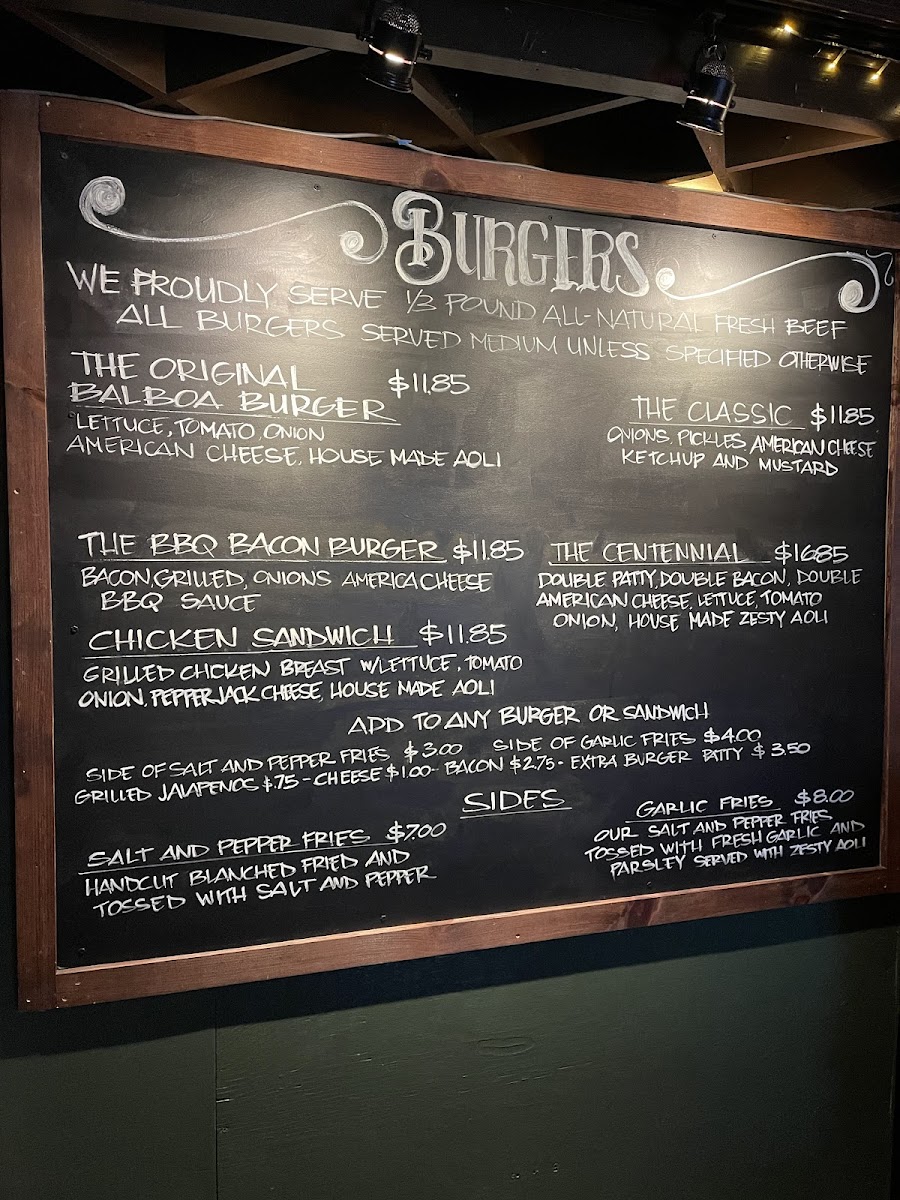 BURGERS
WE PROUDLY SERVE 1/3 POUND ALL-NATURAL FRESH BEEF
ALL BURGERS SERVED MEDIUM UNLESS SPECIFIED OTHERWISE
THE ORIGINAL
BALBOA BURGER $11.85
LETTUCE, TOMATO, ONION
AMERICAN CHEESE, HOUSE MADE AOLI
THE CLASSIC $11.85
ONIONS, PICKLES, AMERICAN CHEESE
KETCHUP AND MUSTARD
THE BBQ BACON BURGER $11.85
BACON, GRILLED, ONIONS AMERICA CHEESE
BBQ SAUCE
THE CENTENNIAL $16.85
DOUBLE PATTY, DOUBLE BACON, DOUBLE
AMERICAN CHEESE, LETTUCE, TOMATO
ONION, HOUSE MADE ZESTY AOLI
CHICKEN SANDWICH $11.85
GRILLED CHICKEN BREAST W/LETTUCE, TOMATO
ONION, PEPPERJACK CHEESE, HOUSE MADE AOLI
ADD TO ANY BURGER OR SANDWICH
SIDE OF SALT AND PEPPER FRIES $3.00 SIDE OF GARLIC FRIES $4.00
GRILLED JALAPENOS $.75 - CHEESE $1.00 - BACON $2.75 - EXTRA BURGER PATTY $3.50
SIDES
SALT AND PEPPER FRIES $7.00
HANDCUT BLANCHED FRIED AND
TOSSED WITH SALT AND PEPPER
GARLIC FRIES $8.00
OUR SALT AND PEPPER FRIES
TOSSED WITH FRESH GARLIC AND
PARSLEY SERVED WITH ZESTY AOLI